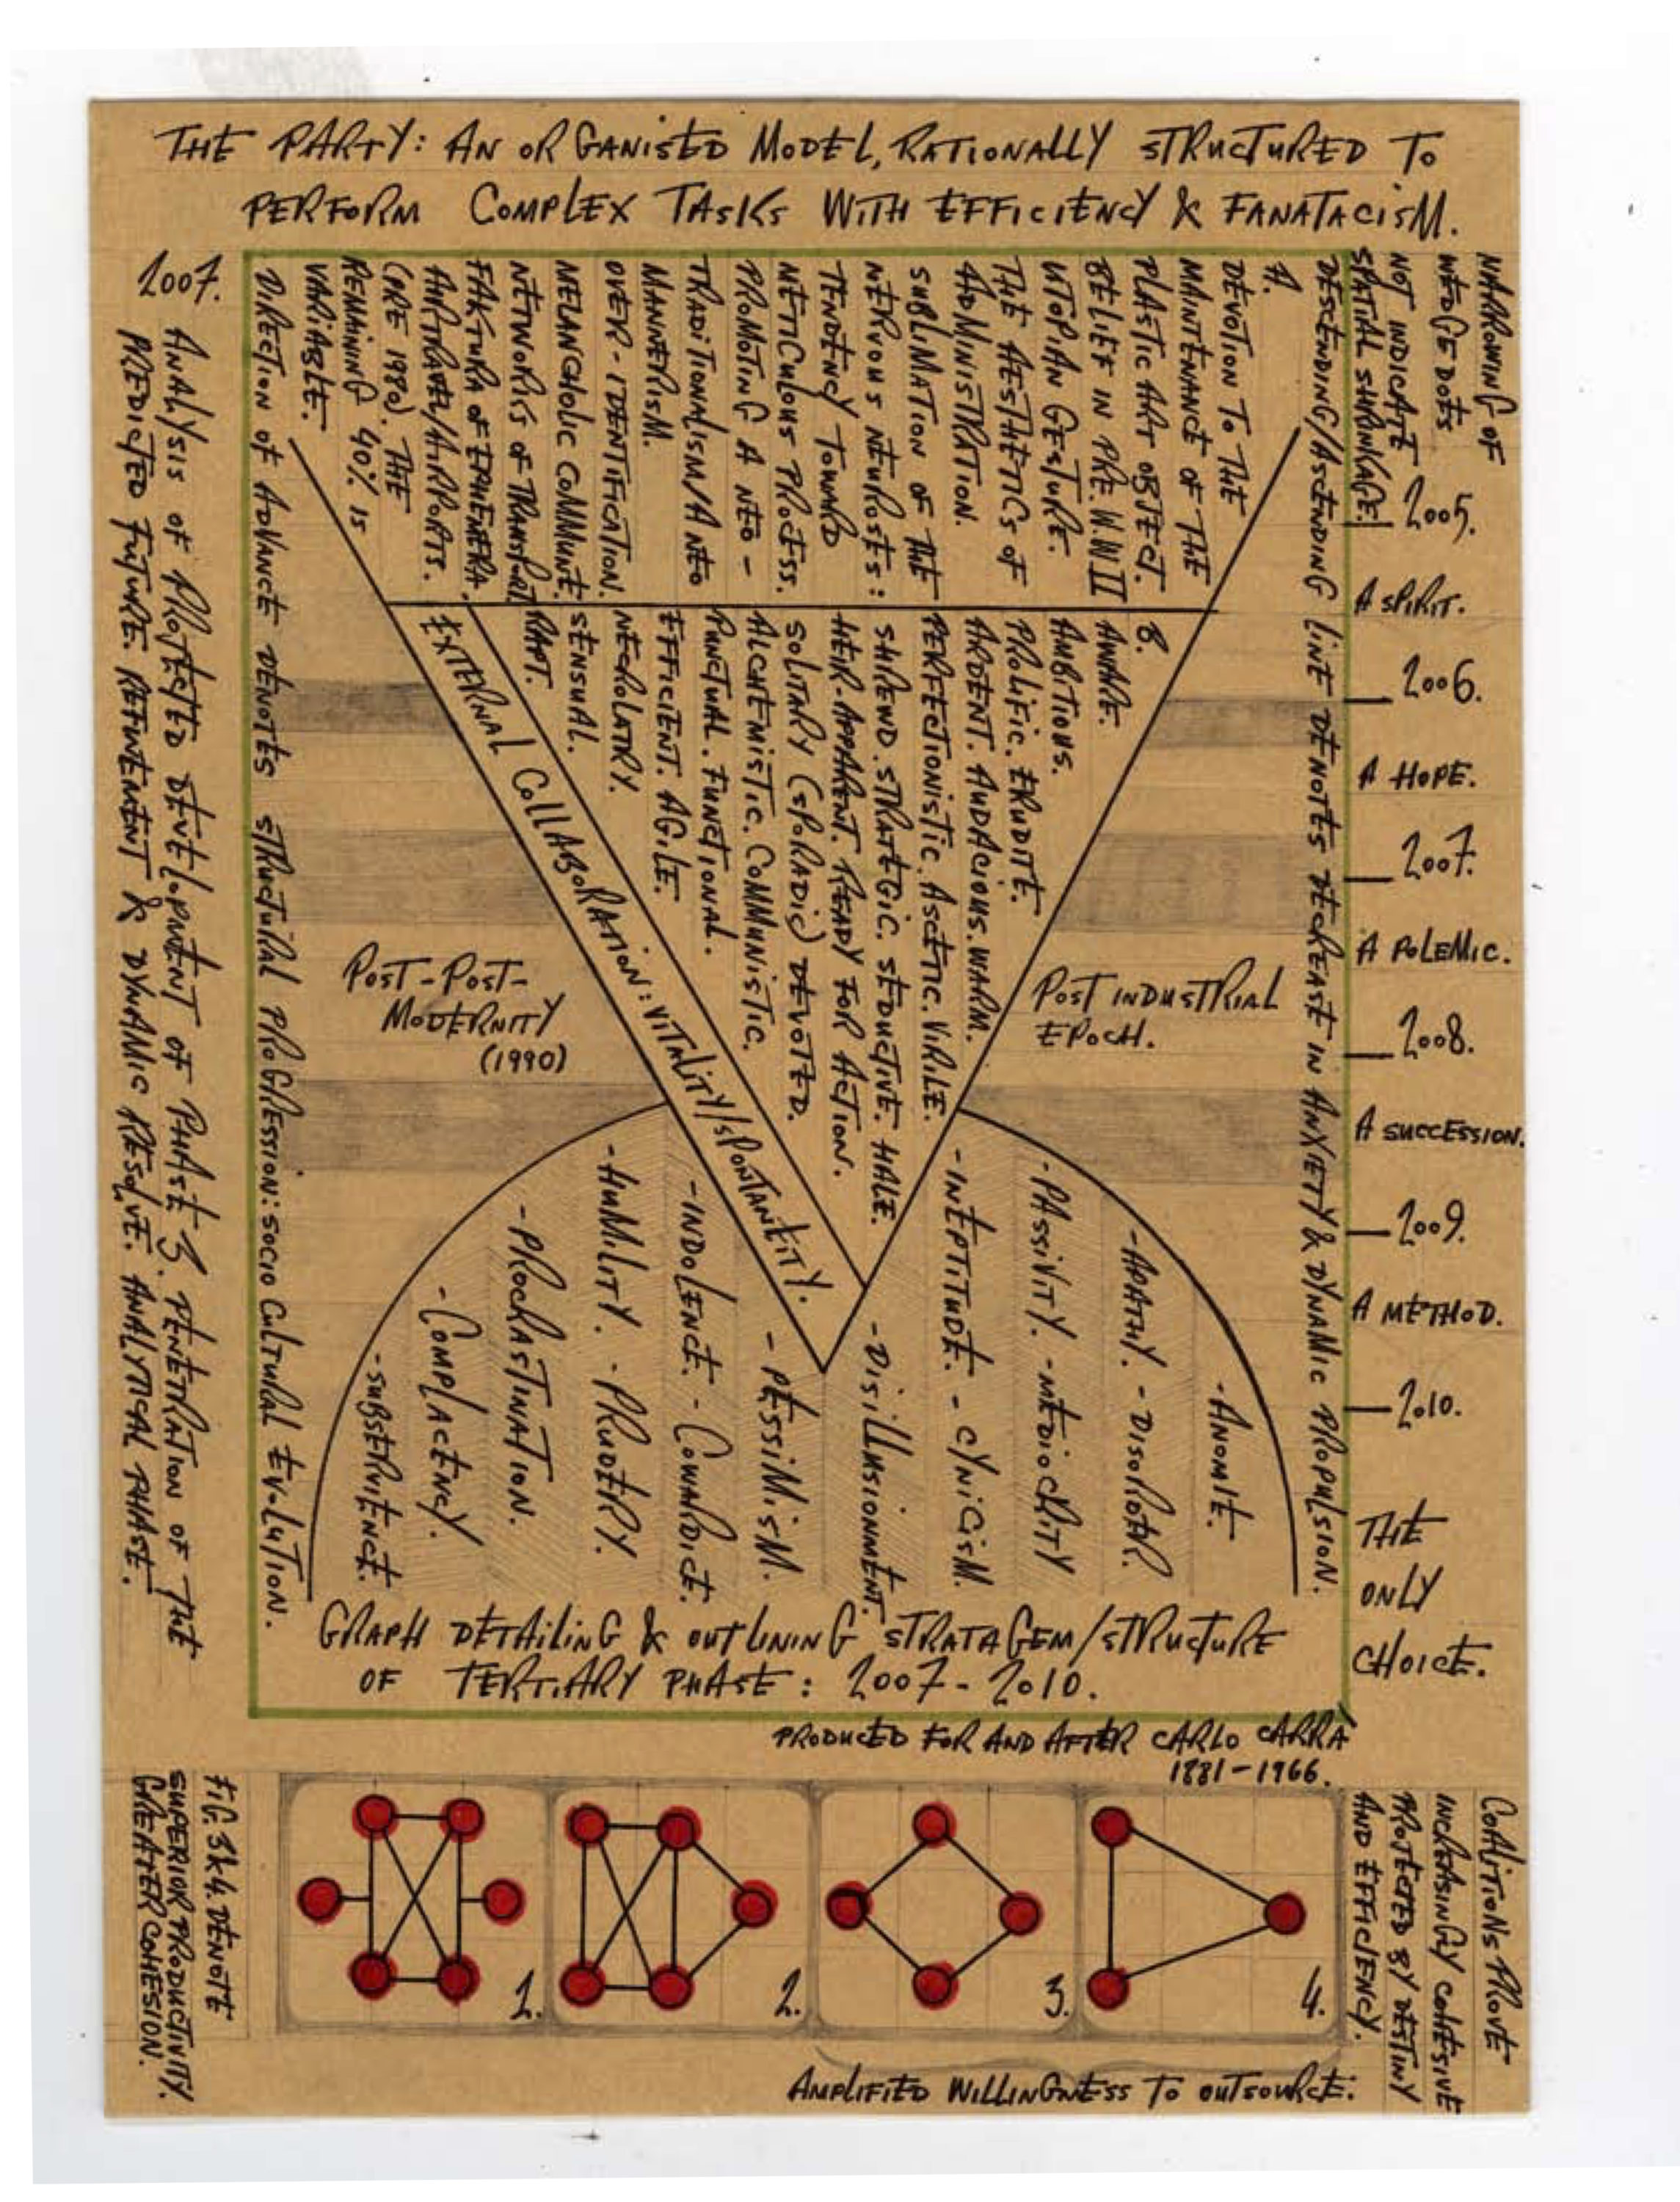 THE PARTY: AN ORGANISED MODEL, RATIONALLY STRUCTURED TO
PERFORM COMPLEX TASKS WITH EFFICIENCY & FANATACISM.
2007.
ANALYSIS OF PROJECTED DEVELOPMENT OF PHASE 3. PENETRATION OF THE
PREDICTED FUTURE. REFINEMENT & DYNAMIC RESOLVE. ANALYTICAL PHASE.
NARROWING OF
WEDGE DOES
NOT INDICATE
SPATIAL SHRINKAGE.
DESCENDING/ASCENDING LINE DENOTES DECREASE IN ANXIETY & DYNAMIC PROPULSION.
A.
DEVOTION TO THE
MAINTENANCE OF THE
PLASTIC ART OBJECT.
BELIEF IN PRE. W.W II
UTOPIAN GESTURE.
THE AESTHETICS OF
ADMINISTRATION.
SUBLIMATION OF THE
NERVOUS NEUROSES:
TENDENCY TOWARD
METICULOUS PROCESS.
PROMOTING A NEO-
TRADITIONALISM/A NEO
MANNERISM.
OVER-IDENTIFICATION.
MELANCHOLIC COMMUNE.
NETWORKS OF TRANSPORT.
FAKTURA OF EPHEMERA.
AIRTRAVEL/AIRPORTS.
(PRE 1980). THE
REMAINING 40% IS
VARIABLE.
DIRECTION OF ADVANCE DENOTES STRUCTURAL PROGRESSION: SOCIO CULTURAL EVOLUTION.
B.
AWARE.
AMBITIOUS.
PROLIFIC. ERUDITE.
ARDENT. AUDACIOUS. WARM.
PERFECTIONISTIC. ASCETIC. VIRILE.
SHREWD. STRATEGIC. SEDUCTIVE. HALE.
HEIR-APPARENT. READY FOR ACTION.
SOLITARY (SPORADIC) DEVOTED.
ALCHEMISTIC. COMMUNISTIC.
PUNCTUAL. FUNCTIONAL.
EFFICIENT. AGILE.
NECROLATRY.
SENSUAL.
RAPT.
EXTERNAL COLLABORATION: VITALITY/SPONTANEITY.
POST-POST-
MODERNITY
(1990)
POST INDUSTRIAL
EPOCH.
-ANOMIE.
-APATHY. -DISORDER.
-PASSIVITY. -MEDIOCRITY
-INEPTITUDE. -CYNICISM.
-DISILLUSIONMENT.
-PESSIMISM.
-INDOLENCE. -COWARDICE.
-HUMILITY. -PRUDERY.
-PROCRASTINATION.
-COMPLACENCY.
-SUBSERVIENCE.
2005.
A SPIRIT.
2006.
A HOPE.
2007.
A POLEMIC.
2008.
A SUCCESSION.
2009.
A METHOD.
2010.
THE
ONLY
CHOICE.
GRAPH DETAILING & OUTLINING STRATAGEM/STRUCTURE
OF TERTIARY PHASE: 2007-2010.
PRODUCED FOR AND AFTER CARLO CARRA
1881-1966.
FIG. 3&4. DENOTE
SUPERIOR PRODUCTIVITY.
GREATER COHESION.
1.
2.
3.
4.
COALITIONS PROVE
INCREASINGLY COHESIVE
PROJECTED BY DESTINY
AND EFFICIENCY.
AMPLIFIED WILLINGNESS TO OUTSOURCE.